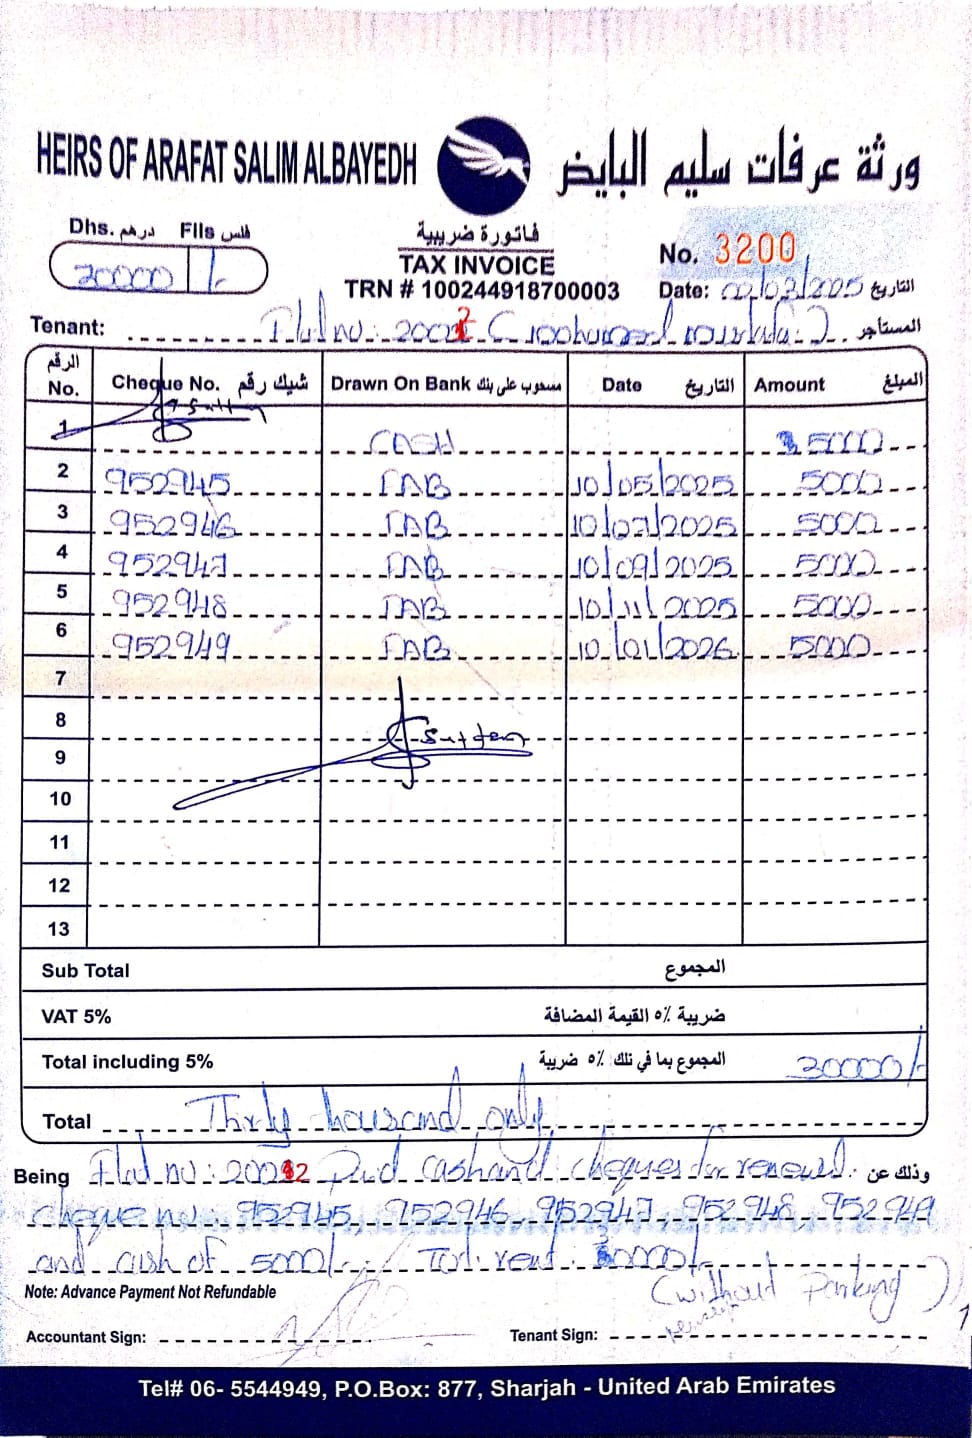 HEIRS OF ARAFAT SALIM ALBAYEDH ورثة عرفات سليم البايض
Dhs. درهم Fils فلس
30000 /-
فاتورة ضريبية
TAX INVOICE
TRN # 100244918700003
No. 3200
Date: 02/03/2025 التاريخ
Tenant: Flat no: 2002 المستأجر
الرقم No. Cheque No. شيك رقم Drawn On Bank مسحوب على بنك Date التاريخ Amount المبلغ
1 CASH 5000
2 952945 FAB 10/05/2025 5000
3 952946 FAB 10/07/2025 5000
4 952947 FAB 10/09/2025 5000
5 952948 FAB 10/11/2025 5000
6 952949 FAB 10/01/2026 5000
7
8
9
10
11
12
13
Sub Total المجموع
VAT 5% ضريبة ٥% القيمة المضافة
Total including 5% المجموع بما في ذلك ٥% ضريبة 30000/-
Total Thirty thousand only
Being Flat no: 2002 Paid cash and cheques for renewal. وذلك عن
cheque no: 952945, 952946, 952947, 952948, 952949
and cash of 5000/- Tot. rent: 30000/-
(without Parking)
Note: Advance Payment Not Refundable
Accountant Sign: Tenant Sign:
Tel# 06- 5544949, P.O.Box: 877, Sharjah - United Arab Emirates